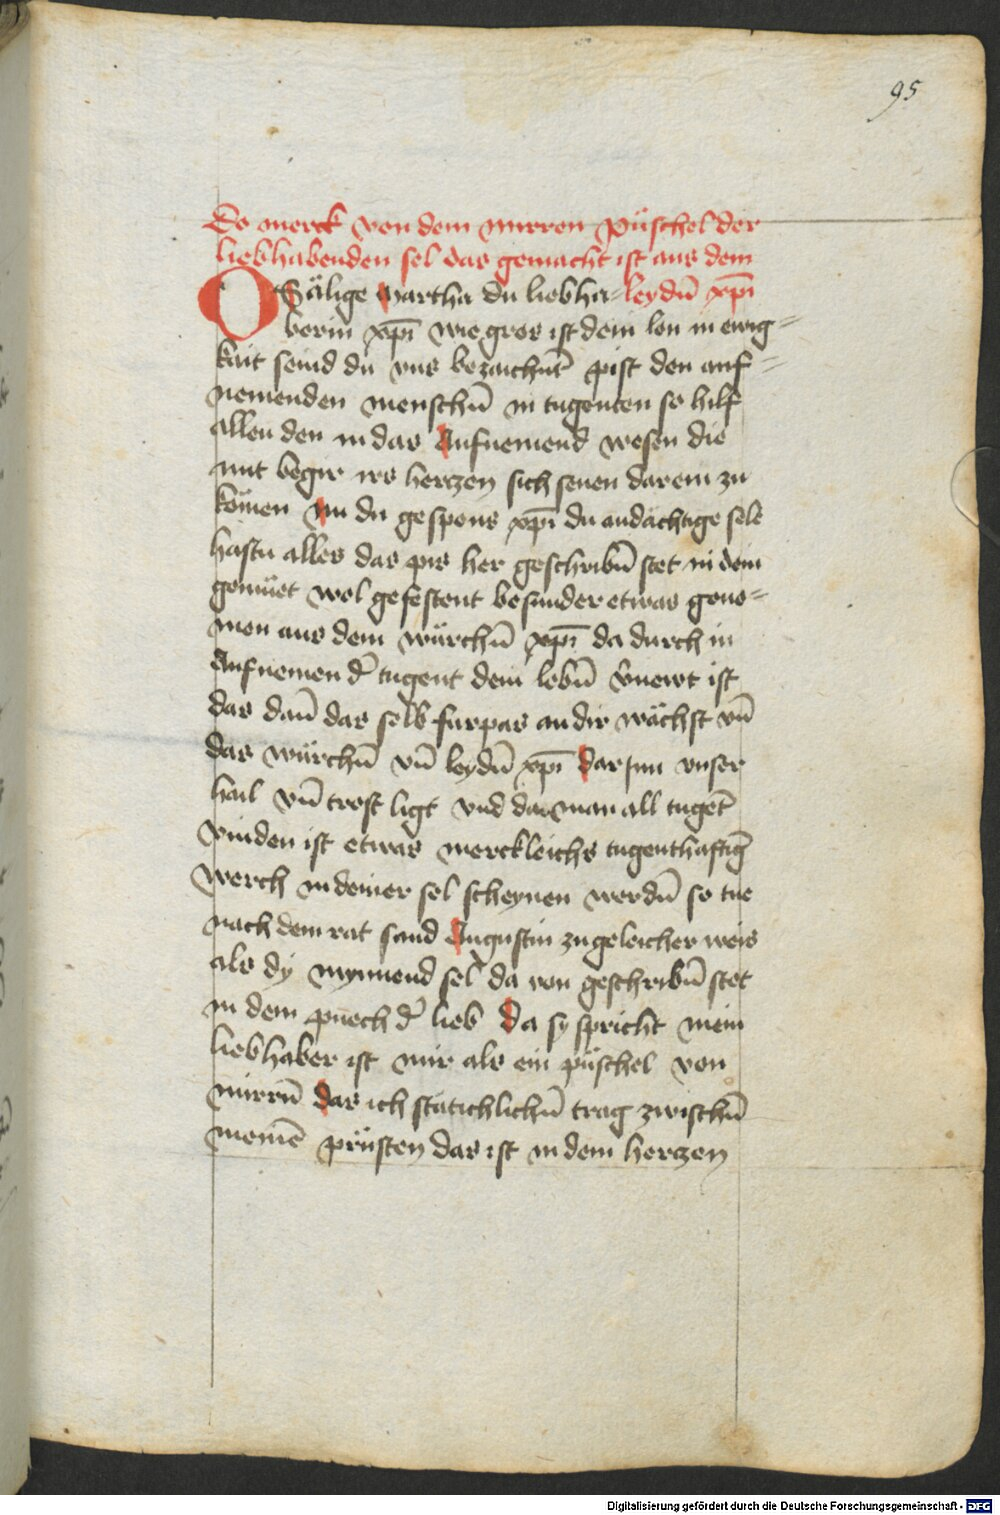 95
Do merck von dem mirren püschel der
liebhabenden sel das gemacht ist aus dem
O Sälige martha du liebha- leydn̄ xp̄i
berin xp̄i wie gros ist dein lon in ewig-
kait seind du vns bezaichnt̄ pist den auf-
nemenden menschn̄ in tugenten so hilf
allen den in das Aufnemend wesen die
mit begir irs hertzen sich senen darein zu
kōmen Nu du gespons xp̄i du andächtige sele
hastu alles das pis her geschribn̄ stet in dein
gemüet wol gefestent besunder etwas geno-
men aus dem würchn̄ xp̄i da durch in
Aufnemen d̄ tugent dein lebn̄ v̄newt ist
das dan̄ das selb furpas an dir wächst vn̄
das würchn̄ vn̄ leydn̄ xp̄i darinn vnser
hail vn̄ trost ligt vnd da man all tuget̄
vinden ist etwas merckleichs tugenthaftiḡ
werch in deiner sel scheynen werdn̄ so tue
nach dem rat sand Augustin zu geleicher weis
als dy mynnend sel da von geschribn̄ stet
in dem puech d̄ lieb Da sy spricht mein
liebhaber ist mir als ein püschel von
mirrn̄ das ich stätichlichn̄ trag zwischn̄
meinē prüsten das ist in dem hertzen
Digitalisierung gefördert durch die Deutsche Forschungsgemeinschaft - DFG